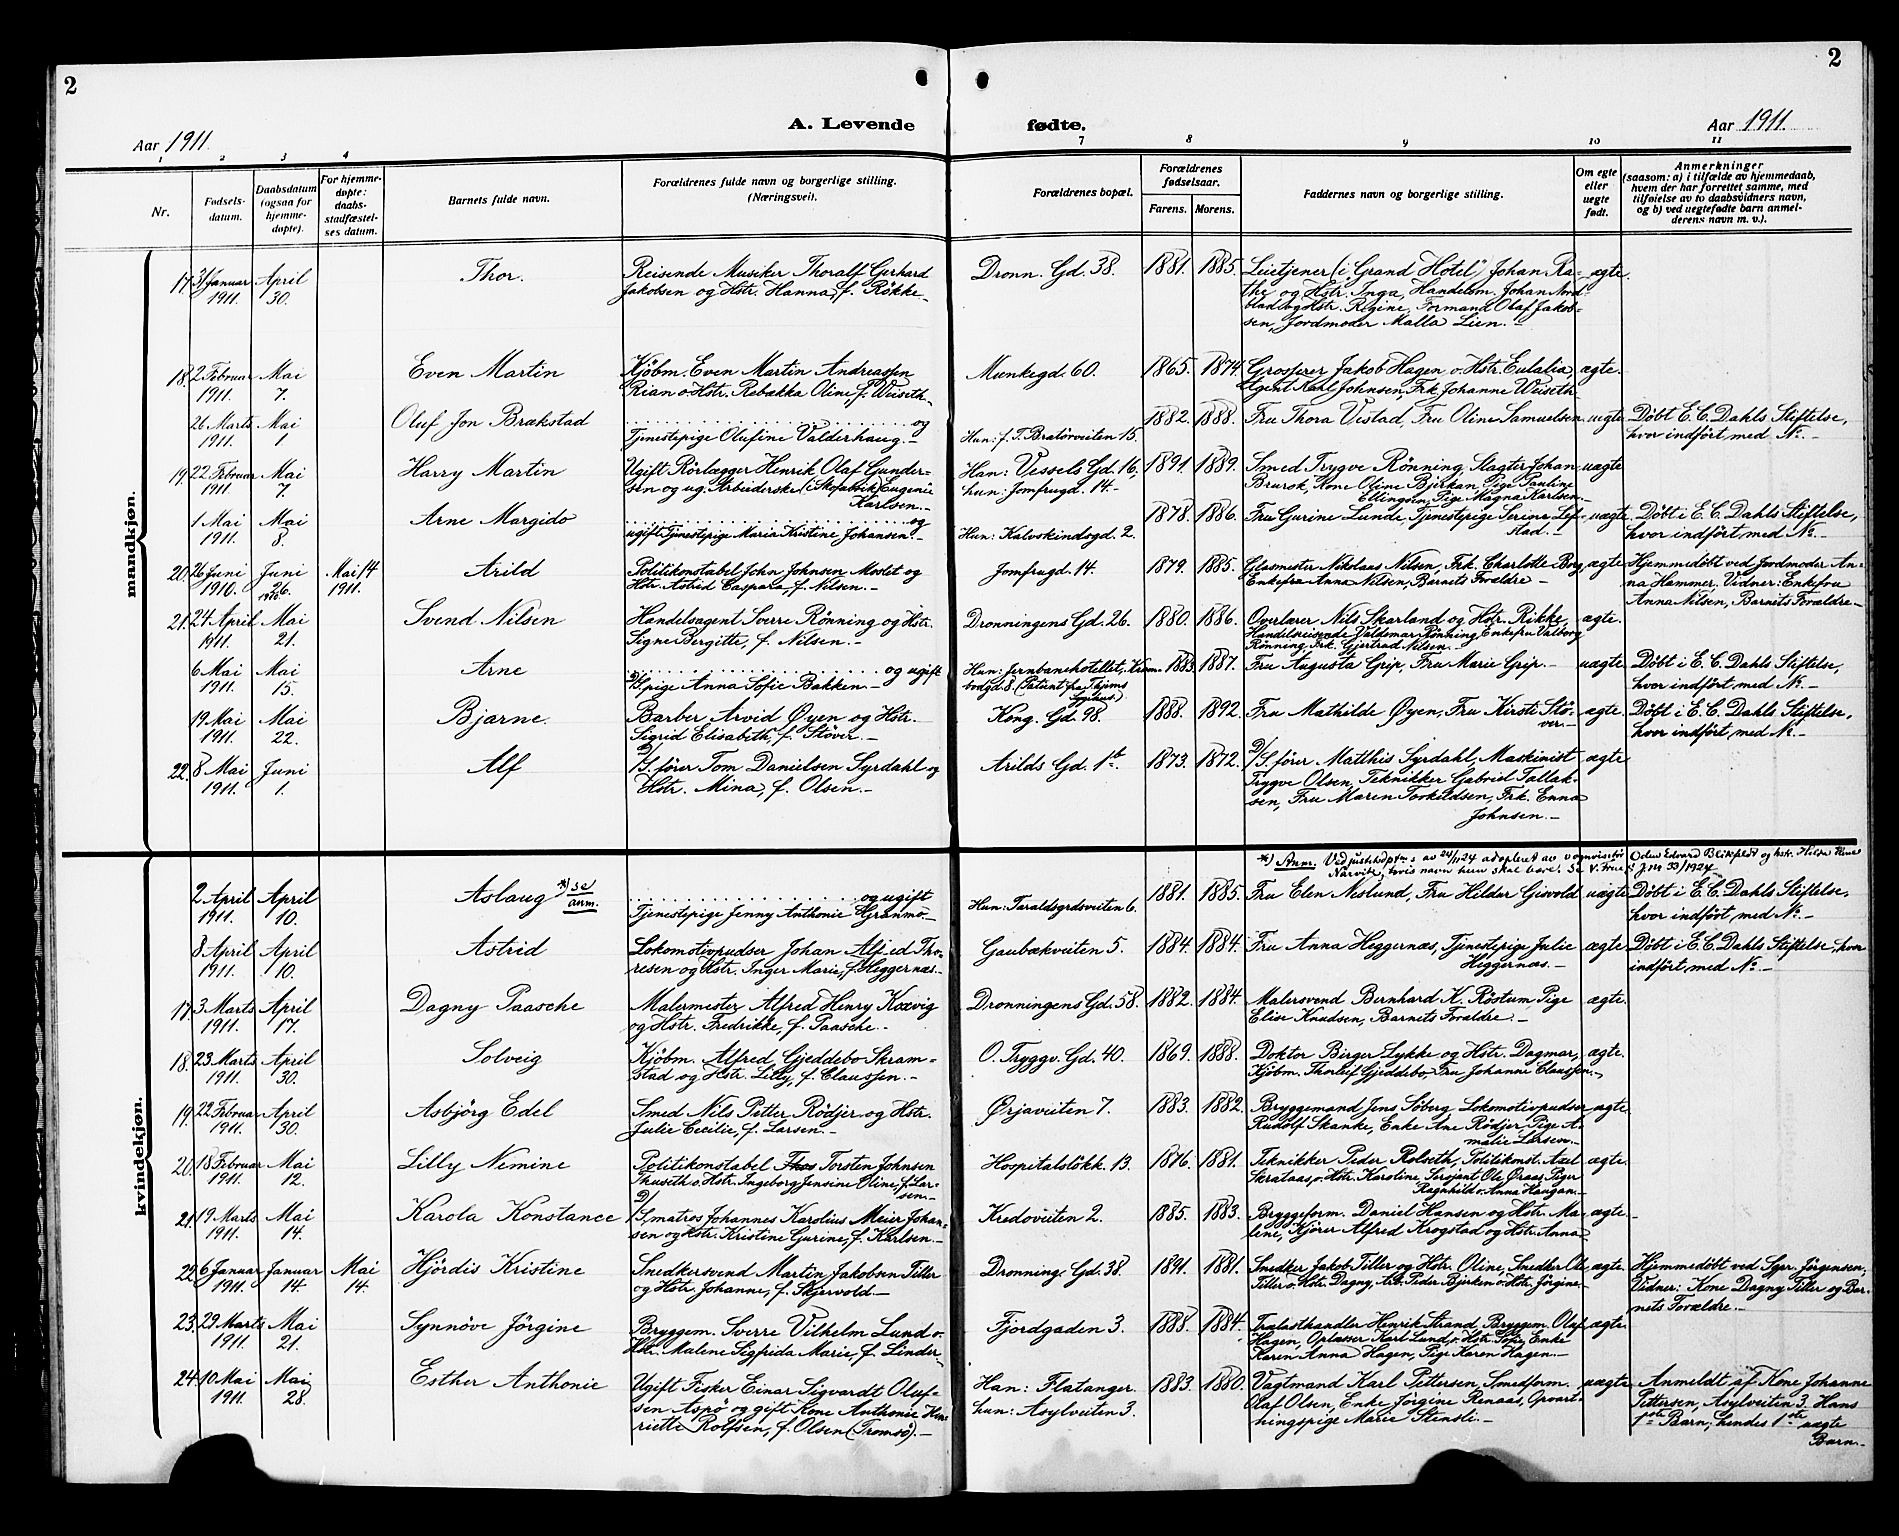 2
2
A. Levende fødte.
Aar 1911.
Aar 1911.
1 2 3 4 7 8 9 10 11
Nr.
Fødsels-
datum.
Daabsdatum
(ogsaa for
hjemme-
døpte).
For hjemme-
døpte:
daabs-
stadfæstel-
ses datum.
Barnets fulde navn.
Forældrenes fulde navn og borgerlige stilling.
(Næringsvei).
Forældrenes bopæl.
Forældrenes
fødselsaar.
Farens. Morens.
Faddernes navn og borgerlige stilling.
Om egte
eller
uegte
født.
Anmerkninger
(saasom: a) i tilfælde av hjemmedaab,
hvem der har forrettet samme, med
tilføielse av to daabsvidners navn,
og b) ved uegtefødte barn anmel-
derens navn m. v.).
mandkjøn.
17. 31 Januar 1911. April 30. Thor. Reisende Musiker Thoralf Gerhard
Jakobsen og Hstr. Hanna, f. Røkke.-
Dronn. Gd. 38. 1881. 1885. Leietjener (i "Grand Hotel") Johan Ra-
the og Hstr. Inga, Handelsm. Johan Nord-
blad og Hstr. Regine, Formand Olaf Jakob-
sen, Jordmoder Malla Lien.- ægte.
18. 2 Februar 1911. Mai 7. Even Martin Kjøbm. Even Martin Andreassen
Rian o. Hstr. Rebækka Oline, f. Weiseth.
Munkegd. 60. 1865. 1874. Grosserer Jakob Hagen o. Hstr. Eulalia
Agent Karl Johnsen, Frk. Johanne Weiseth ægte.
26 Marts 1911. Mai 1 Oluf Jon Brækstad og
Tjenestepige Olufine Valderhaug.-
Hun: f. T. Bratørveiten 15. 1882. 1888. Fru Thora Vistad, Fru Oline Samuelsen uægte Døbt E. C. Dahls Stiftelse,
hvor indført med No.-
19. 22 Februar 1911. Mai 7. Harry Martin Ugift Rörlægger Henrik Olaf Gunder-
sen og ug. Arbeiderske (i Skofabrik) Eugenie
Karlsen.-
Han: Vessels Gd. 16,
hun: Jomfrugd. 14.- 1891. 1889. Smed Trygve Rönning, Slagter Johan
Brursk, Kone Oline Bjerkan, Pige Pauline
Ellingsen, Pige Magna Karlsen.- uægte
1 Mai 1911. Mai 8. Arne Margido og
ugift Tjenestepige Maria Kristine Johansen.-
Hun: Kalvskindsgd. 2. 1878. 1886. Fru Gurine Lunde, Tjenestepige Serine Lef-
stad.- uægte. Døbt i E. C. Dahls Stiftelse,
hvor indført med No.-
20. 26 Juni 1910. Juni 26. 1910. Mai 14 1911. Arild Politikonstabel John Johnsen Moslet og
Hstr. Astrid Caspara, f. Nilsen.-
Jomfrugd. 14. 1879. 1885. Glasmester Nikolaus Nilsen, Frk. Charlotte Boy
Enkefru Anna Nilsen, Barnets Forældre - ægte Hjemmedøbt ved Jordmoder An-
na Hammer. Vidner: Enkefru
Anna Nilsen, Barnets Forældre-
21. 24 April 1911. Mai 21. Svend Nilsen Handelsagent Sverre Rønning og Hstr.
Signe Bergitte, f. Nilsen.-
Dronningens Gd. 26. 1880. 1886. Overlærer Nils Skarland og Hstr. Rikke,
Handelsreisende Valdemar Rønning, Enkefru Valborg
Rønning, Frk. Gjertrud Nilsen.- ægte.
6 Mai 1911. Mai 15. Arne og ugift
T/S. pige Anna Sofie Bakken.-
Hun: Jernbanehotellet, Krambodgd 8. (Patient fra Thjems
Sygehus). 1883. 1887. Fru Augusta Grip, Fru Marie Grip.- uægte Døbt i E. C. Dahls Stiftelse,
hvor indført med No.-
19. Mai 1911. Mai 22. Bjarne. Barber Arvid Øyen og Hstr.
Sigrid Elisabeth, f. Støver.-
Kong. Gd. 98. 1888. 1892. Fru Mathilde Øyen, Fru Kirsti Stö-
ver.- ægte. Døbt i E. C. Dahls Stiftelse,
hvor indført med No.-
22. 8 Mai 1911. Juni 1. Alf D/S. fører Tom Danielsen Syrdahl og
Hstr. Mina, f. Olsen.-
Arilds Gd. 1b. 1873. 1872. D/S. fører Matthis Syrdahl, Maskinist
Trygve Olsen, Teknikker Gabriel Tallak-
sen, Fru Maren Torkildsen, Frk. Enna
Johnsen.- ægte
kvindekjøn.
*) Anm. Ved justitsdept.s av 24/11 24 adopteret av vognvisitør Oden Edvard Blikfeldt og hstr. Hilda
Narvik, hvis navn hun skal bære.
2 April 1911. April 10. Aslaug *) se anm. og ugift
Tjenestepige Jenny Anthonie Granmo.-
Hun: Taraldsgrdsveiten 6. 1881. 1885. Fru Elen Neslund, Fru Hilder Gisvold uægte Døbt i E. C. Dahls Stiftelse,
hvor indført med No.-
8 April 1911. April 10. Astrid Lokomotivpudser Johan Alfred Tho-
resen og Hstr. Inger Marie, f. Heggernæs.-
Gaubækveiten 5. 1884. 1884. Fru Anna Heggernæs, Tjenestepige Julie
Heggernæs.- ægte Døbt i E. C. Dahls Stiftelse, hvor
indført med No.-
17. 3 Marts 1911. April 17. Dagny Paasche Malermester Alfred Henry Koxvig
og Hstr. Fredrikke, f. Paasche.-
Dronningens Gd. 58. 1882. 1884. Malersvend Bernhard K. Röstum, Pige
Elise Knudsen, Barnets Forældre.- ægte.
18. 23 Marts 1911. April 30. Solveig Kjöbm. Alfred Gjeddebo Skram-
stad og Hstr. Lilly, f. Claussen.-
O. Tryggv. Gd. 40. 1869. 1888. Doktor Birger Lykke og Hstr. Dagmar,
Kjöbm. Thorleif Gjeddebo, Fru Johanne Claussen.- ægte.
19. 22 Februar 1911. April 30. Asbjörg Edel Smed Nils Petter Rödjer og Hstr.
Julie Cecilie, f. Larsen.-
Ørjaveiten 7. 1883. 1882. Bryggemand Jens Söberg, Lokomotivpudser
Rudolf Skanke, Enke Ane Rödjer, Pige A-
malie Larsen.- ægte.
20. 18 Februar 1911. Mai 12. Lilly Nemine Politikonstabel Torsten Johnsen
Thuseth o. Hstr. Ingeborg Jensine Oline, f. Lar-
sen.-
Hospitalslökk. 13. 1876. 1881. Teknikker Peder Rolseth, Politikonst. Axel
Skrataas, o. Hstr. Karoline, Serjant Ole Øraas, Piger
Ragnhild o. Anna Haugan.- ægte.
21. 19 Marts 1911. Mai 14. Karola Konstance D/S. matros Johannes Karolius Meier Johan-
sen og Hstr. Kristine Gurine, f. Karlsen.-
Kredoveiten 2. 1885. 1883. Bryggeform. Daniel Hansen og Hstr. Ma-
lene, Kjörer Alfred Krogstad og Hstr. Anna ægte.
22. 6 Januar 1911. Januar 14. Mai 14. Hjördis Kristine Snedkersvend Martin Jakobsen Tiller
og Hstr. Johanne, f. Skjervold.-
Dronning. Gd. 38. 1891. 1881. Snedker Jakob Tiller og Hstr. Oline, Snedker Ole
Tiller o. Hstr. Dagny, Arb. Peder Bjerken o. Hstr. Jörgine ægte Hjemmedöbt ved Sgpr. Jörgensen,
Vidner: Kone Dagny Tiller og Bar-
nets Forældre.-
23. 29 Marts 1911. Mai 21. Synnöve Jörgine Bryggem. Sverre Vilhelm Lund o.
Hstr. Malene Sigfrida Marie, f. Linder-
Fjordgaden 3. 1888. 1884. Trælasthandler Henrik Strand, Bryggem. Olaf
Hagen, Oplæsser Karl Lund, o. Hstr. Sofie, Enke
Karen Anna Hagen, Pige Karen Hagen.- ægte.
24. 10 Mai 1911. Mai 28. Esther Anthonie Ugift Fisker Einar Sigvardt Oluf-
sen Aspö og gift Kone Anthonie Hen-
riette Rolfsen, f. Olsen (Tromsö).-
Han: Flatanger.
hun: Asylveiten 3. 1883. 1880. Vagtmand Karl Pettersen, Smedform.
Olaf Olsen, Enke Jörgine Renaas, Opvart-
ningspige Marie Stensli.- uægte Anmeldt af Kone Johanne
Pettersen, Asylveiten 3. Hans
1ste Barn; hendes 1ste uægte
Barn.-